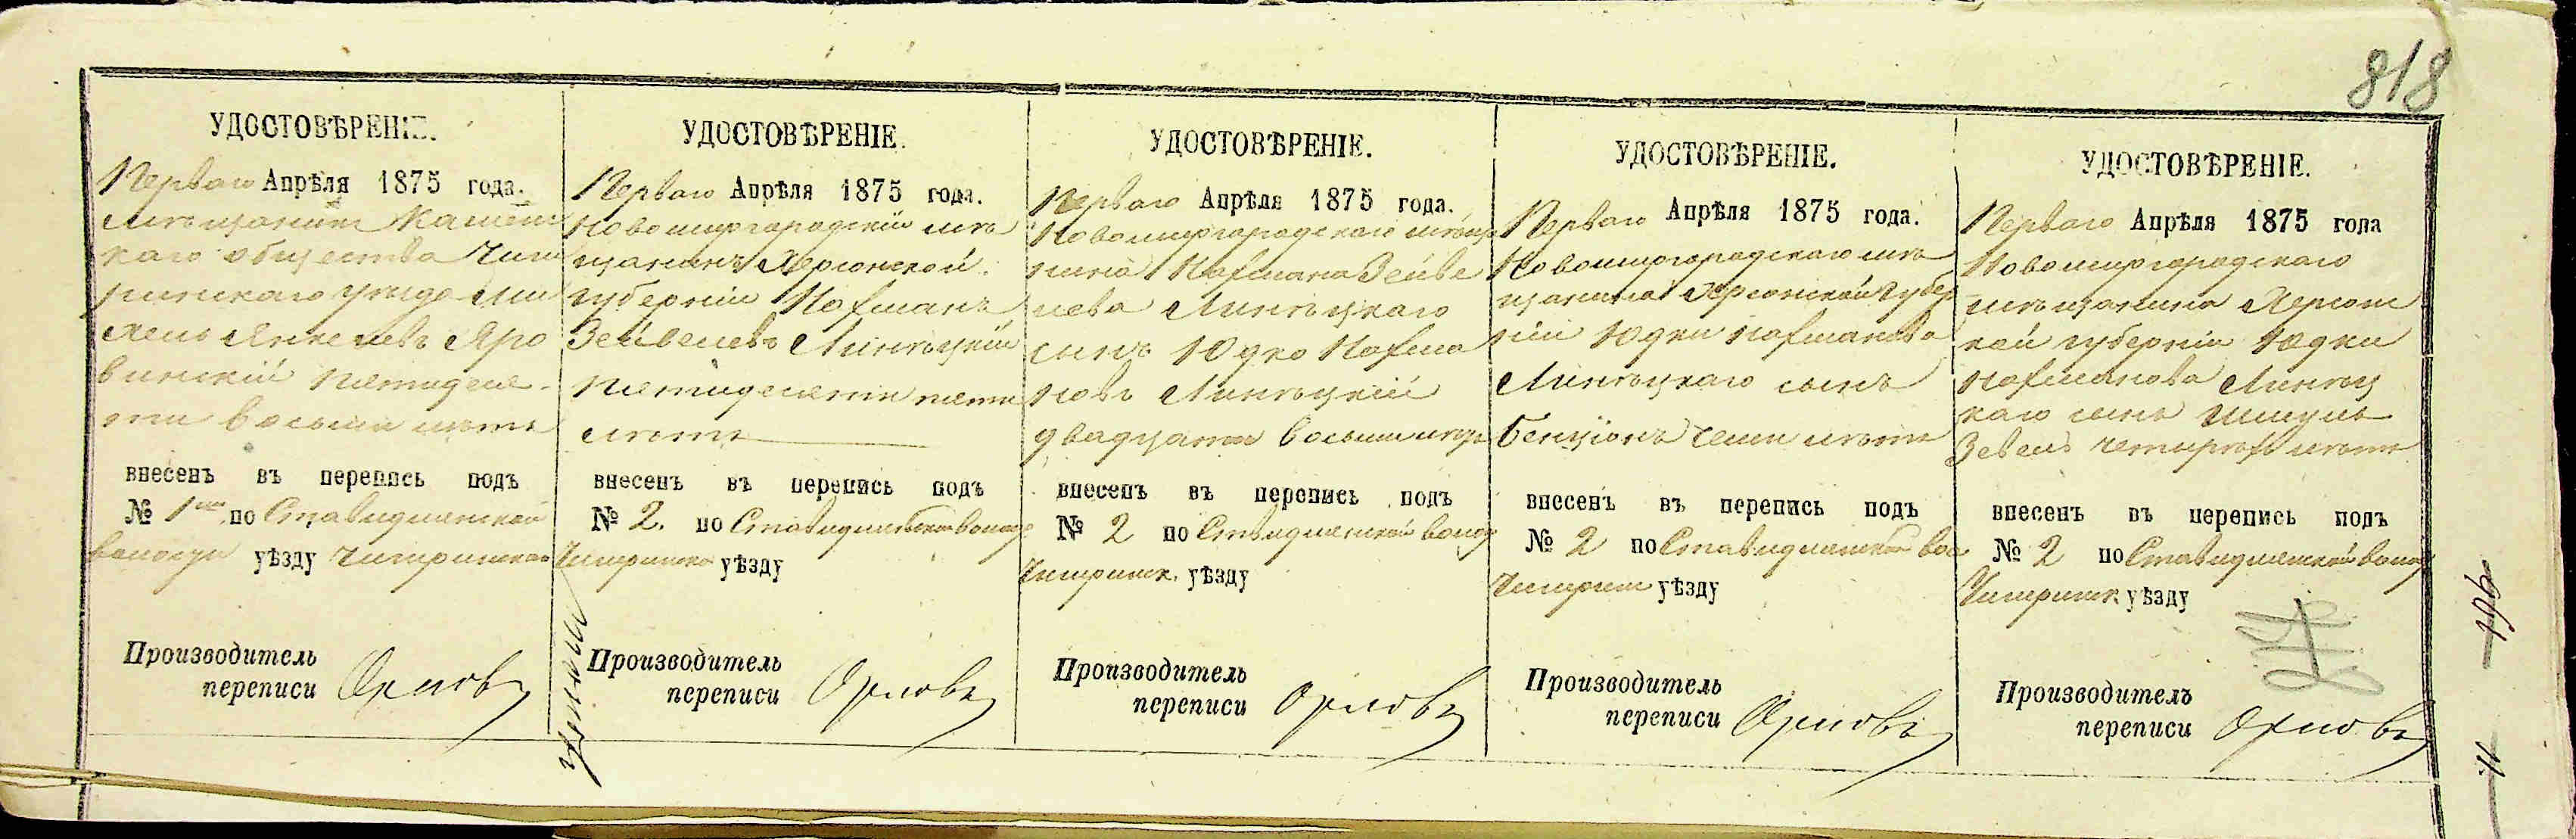 818
УДОСТОВѢРЕНІЕ.
Перваго Апрѣля 1875 года.
мѣщанинъ Камен
каго общества Чиги
ринскаго уѣзда
Янкелевъ Яро
винскій пятидеся-
ти восьми лѣтъ
внесенъ въ перепись подъ
№ 1мъ по Ставидлянской
волости уѣзду Чигиринскаго
Производитель
переписи Орловъ
УДОСТОВѢРЕНІЕ.
Перваго Апрѣля 1875 года.
Новомиргородскій мѣ
щанинъ Херсонской
губерніи Нафманъ
Зейвелевъ Линѣцкій
пятидесяти пяти
лѣтъ
внесенъ въ перепись подъ
№ 2. по Ставидлянской волос
Чигиринск уѣзду
Производитель
переписи Орловъ
УДОСТОВѢРЕНІЕ.
Перваго Апрѣля 1875 года.
Новомиргородскаго мѣща
нина Нафмана Зейве
лева Линѣцкаго
сынъ Юдко Нафма
новъ Линѣцкій
двадцати восьми лѣтъ
внесенъ въ перепись подъ
№ 2 по Ставидлянской волос
Чигиринск. уѣзду
Производитель
переписи Орловъ
УДОСТОВѢРЕНІЕ.
Перваго Апрѣля 1875 года.
Новомиргородскаго мѣ
щанина Херсонской губер
ніи Юдки Нафманова
Линѣцкаго сынъ
Бенціонъ семи лѣтъ
внесенъ въ перепись подъ
№ 2 по Ставидлянской вол
Чигирин уѣзду
Производитель
переписи Орловъ
УДОСТОВѢРЕНІЕ.
Перваго Апрѣля 1875 года
Новомиргородскаго
мѣщанина Херсон
кой губерніи Юдки
Нафманова Линѣц
каго сынъ Шмуль
Зевель четырехъ лѣтъ
внесенъ въ перепись подъ
№ 2 по Ставидлянской волос
Чигиринск уѣзду
Производитель
переписи Орловъ